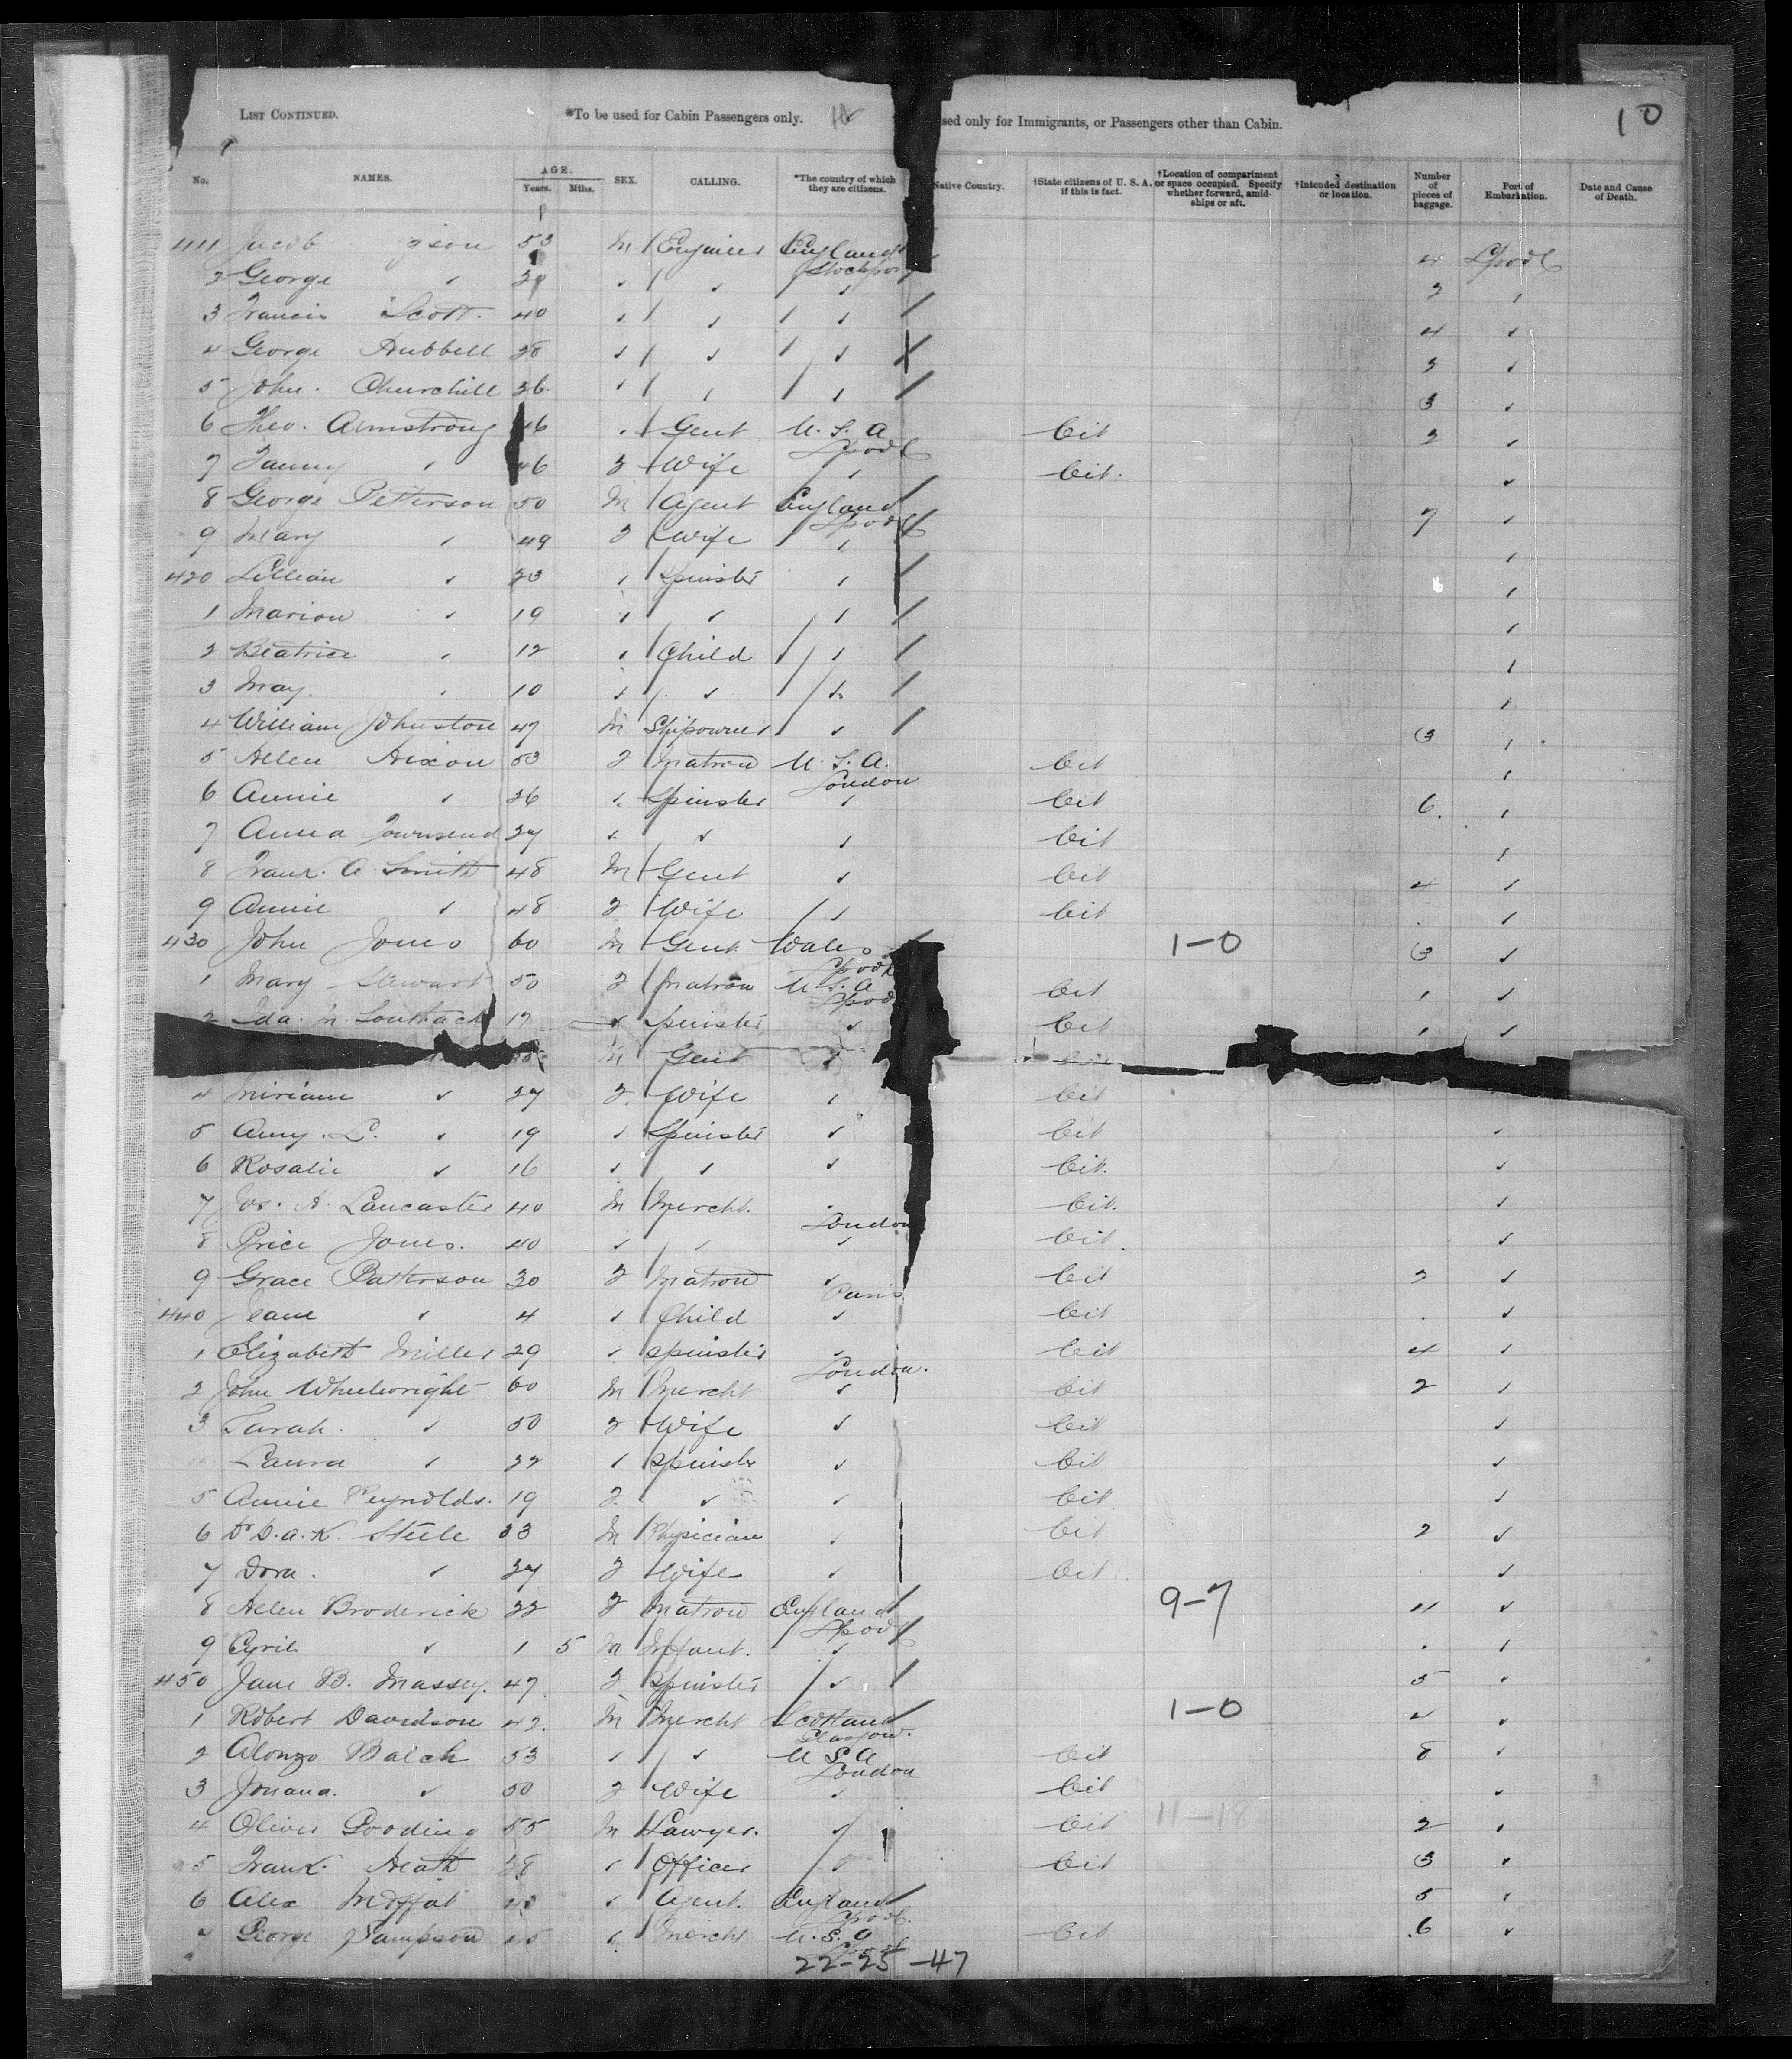 LIST CONTINUED. *To be used for Cabin Passengers only. sed only for Immigrants, or Passengers other than Cabin. 10
No. NAMES. AGE. Years. Mths. SEX. CALLING. *The country of which they are citizens. Native Country. †State citizens of U. S. A. if this is fact. †Location of compartment or space occupied. Specify whether forward, amidships or aft. †Intended destination or location. Number of pieces of baggage. Port of Embarkation. Date and Cause of Death.
411 Jacob 53 M Engineer England 4 Lpool
Stockpor
2 George ✓ ✓ ✓ ✓ 2 ✓
3 Francis Scott. 40 ✓ ✓ ✓ 4 ✓
4 George Hubbell 38 ✓ ✓ ✓ ✓
5 John. Churchill 36 ✓ ✓ ✓ 3 ✓
6 Theo. Armstrong 46 ✓ Gent U. S. A Cit 2 ✓
Lpool
7 Fanny ✓ 46 F Wife ✓ Cit. ✓
8 George Petterson 50 M Agent England 7 ✓
Lpool
9 Mary ✓ 49 F Wife ✓ ✓
420 Lillian ✓ 23 ✓ Spinster ✓ ✓
1 Marion ✓ 19 ✓ ✓ ✓ ✓
2 Beatrice ✓ 12 ✓ Child ✓ ✓
3 May. ✓ 10 ✓ ✓ ✓ ✓
4 William Johnston 47 M Shipowner ✓ 3 ✓
5 Helen Hixon 53 F Matron U. S. A. Cit ✓
London
6 Annie ✓ 26 ✓ Spinster ✓ Cit 6. ✓
7 Anna Townsend 27 ✓ ✓ ✓ Cit ✓
8 Frank. A Smith 48 M Gent ✓ Cit 4 ✓
9 Annie ✓ 48 F Wife ✓ Cit ✓
430 John Jones 60 M Gent Wales 1-0 3 ✓
Lpool
1 Mary Stewart 50 F Matron U. S. A Cit 1 ✓
Lpool
2 Ida. M. 17 ✓ Spinster ✓ Cit 1 ✓
M Gent ✓ Cit
4 Miriam ✓ 27 F. Wife ✓ Cit
5 Amy. L. ✓ 19 ✓ Spinster ✓ Cit ✓
6 Rosalie ✓ 16 ✓ ✓ ✓ Cit. ✓
7 Jos. A. Lancaster 40 M Mercht. Cit. ✓
London
8 Price Jones. 40 ✓ ✓ ✓ Cit. ✓
9 Grace Patterson 30 F Matron ✓ Cit 2 ✓
Paris
440 Jeane ✓ 4 ✓ Child ✓ Cit. ✓
1 Elizabeth Miller 29 ✓ Spinster ✓ Cit 4 ✓
London.
2 John Wheelwright 60 M Mercht ✓ Cit 2 ✓
3 Sarah. ✓ 50 F Wife ✓ Cit ✓
Laura ✓ 22 ✓ Spinster ✓ Cit ✓
5 Annie Reynolds. 19 F. ✓ ✓ Cit ✓
6 Dr D. A. K. Steele 33 M Physician ✓ Cit 2 ✓
7 Dora. ✓ 27 F Wife ✓ Cit ✓
8 Helen Broderick 22 F Matron England 9-7 11 ✓
Lpool
9 Cyril ✓ 1 5 M Infant. ✓ ✓
450 Jane B. Massey. 47 F Spinster ✓ 5 ✓
1 Robert Davidson 42. M Mercht Scotland 1-0 ✓
Glasgow.
2 Alonzo Balch 53 ✓ ✓ U S A Cit 8 ✓
London
3 Jonana. ✓ 50 F Wife ✓ Cit ✓
4 Oliver Gooding 55 M Lawyer. ✓ Cit 2 ✓
5 Frank. Heath 38 ✓ Officer ✓ Cit 3 ✓
6 Alex Moffat ✓ Agent. England 5 ✓
Lpool.
George Sampson ✓ Mercht U. S. A Cit 6 ✓
22-25-47